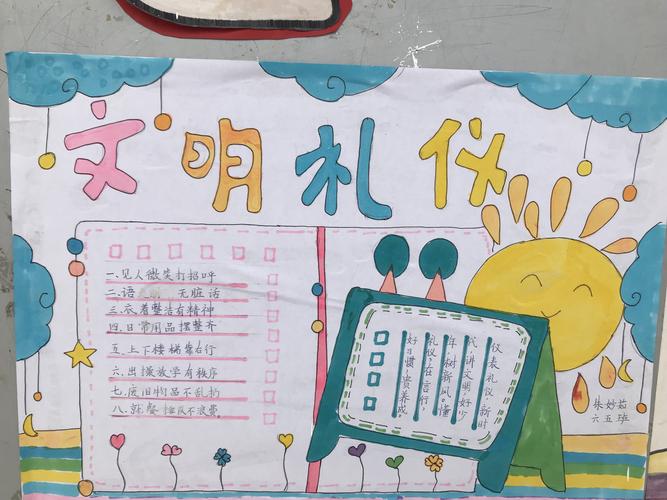 文明礼仪
一.见人微笑打招呼
二.语 无脏话
三.衣着整洁有精神
四.日常用品摆整齐
五.上下楼梯靠右行
六.出操放学有秩序
七.废旧物品不乱扔
八.就餐排队不浪费
仪表礼仪,新时
代,讲文明,好少
年,树新风。懂
礼仪,在言行,
好习惯,贵养成
朱妙茹
六五班